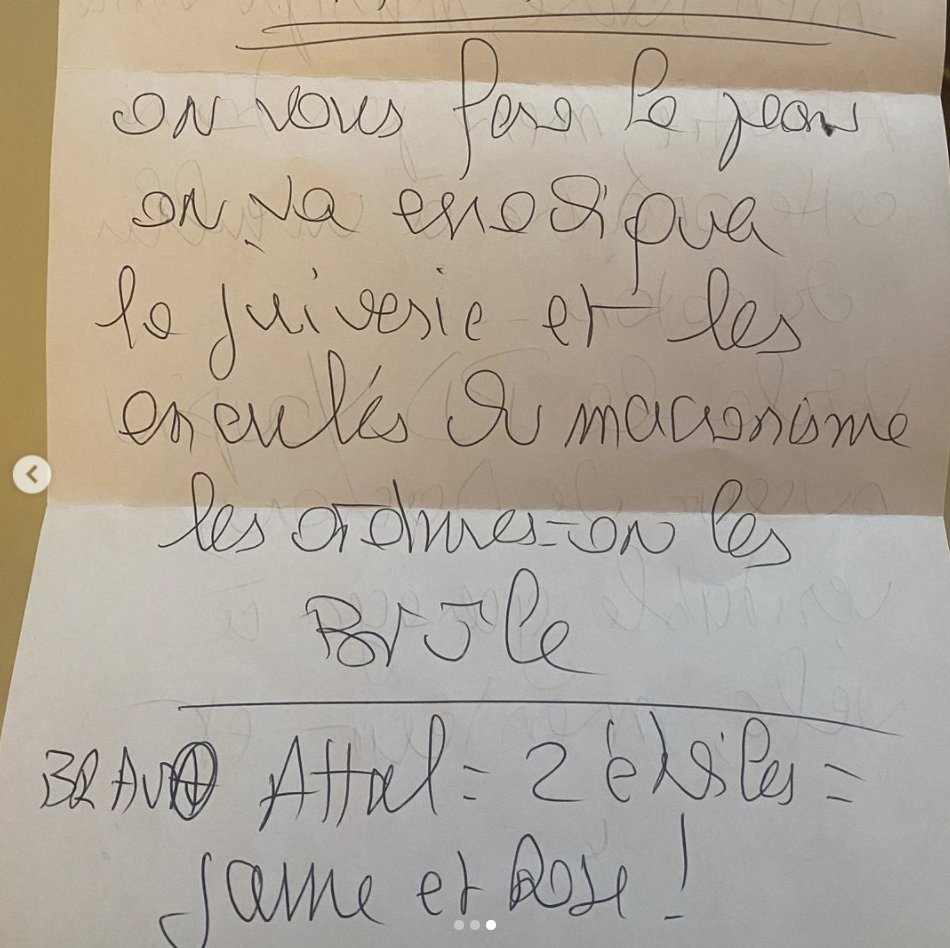 on vous fera la peau
on va eradiqua
la juiverie et les
enculés du macronisme
les ordures - on les
Brûle
BRAVO Attal = 2 étoiles =
Jaune et Rose !